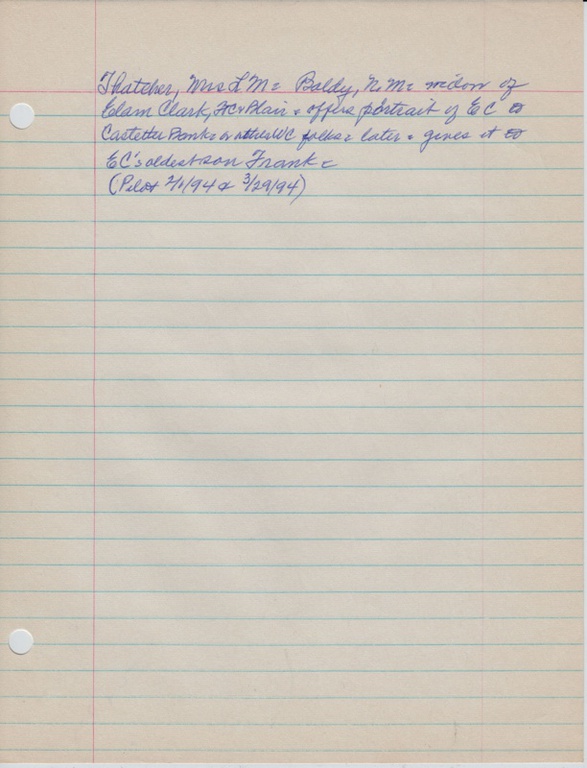 Thatcher, Mrs L M = Baldy, N.M. = widow of
Elam Clark, Ft C & Blair = offers portrait of E C to
Castetter Bank = or other WC folks = later = gives it to
EC's oldest son Frank =
(Pilot 2/1/94 & 3/29/94)